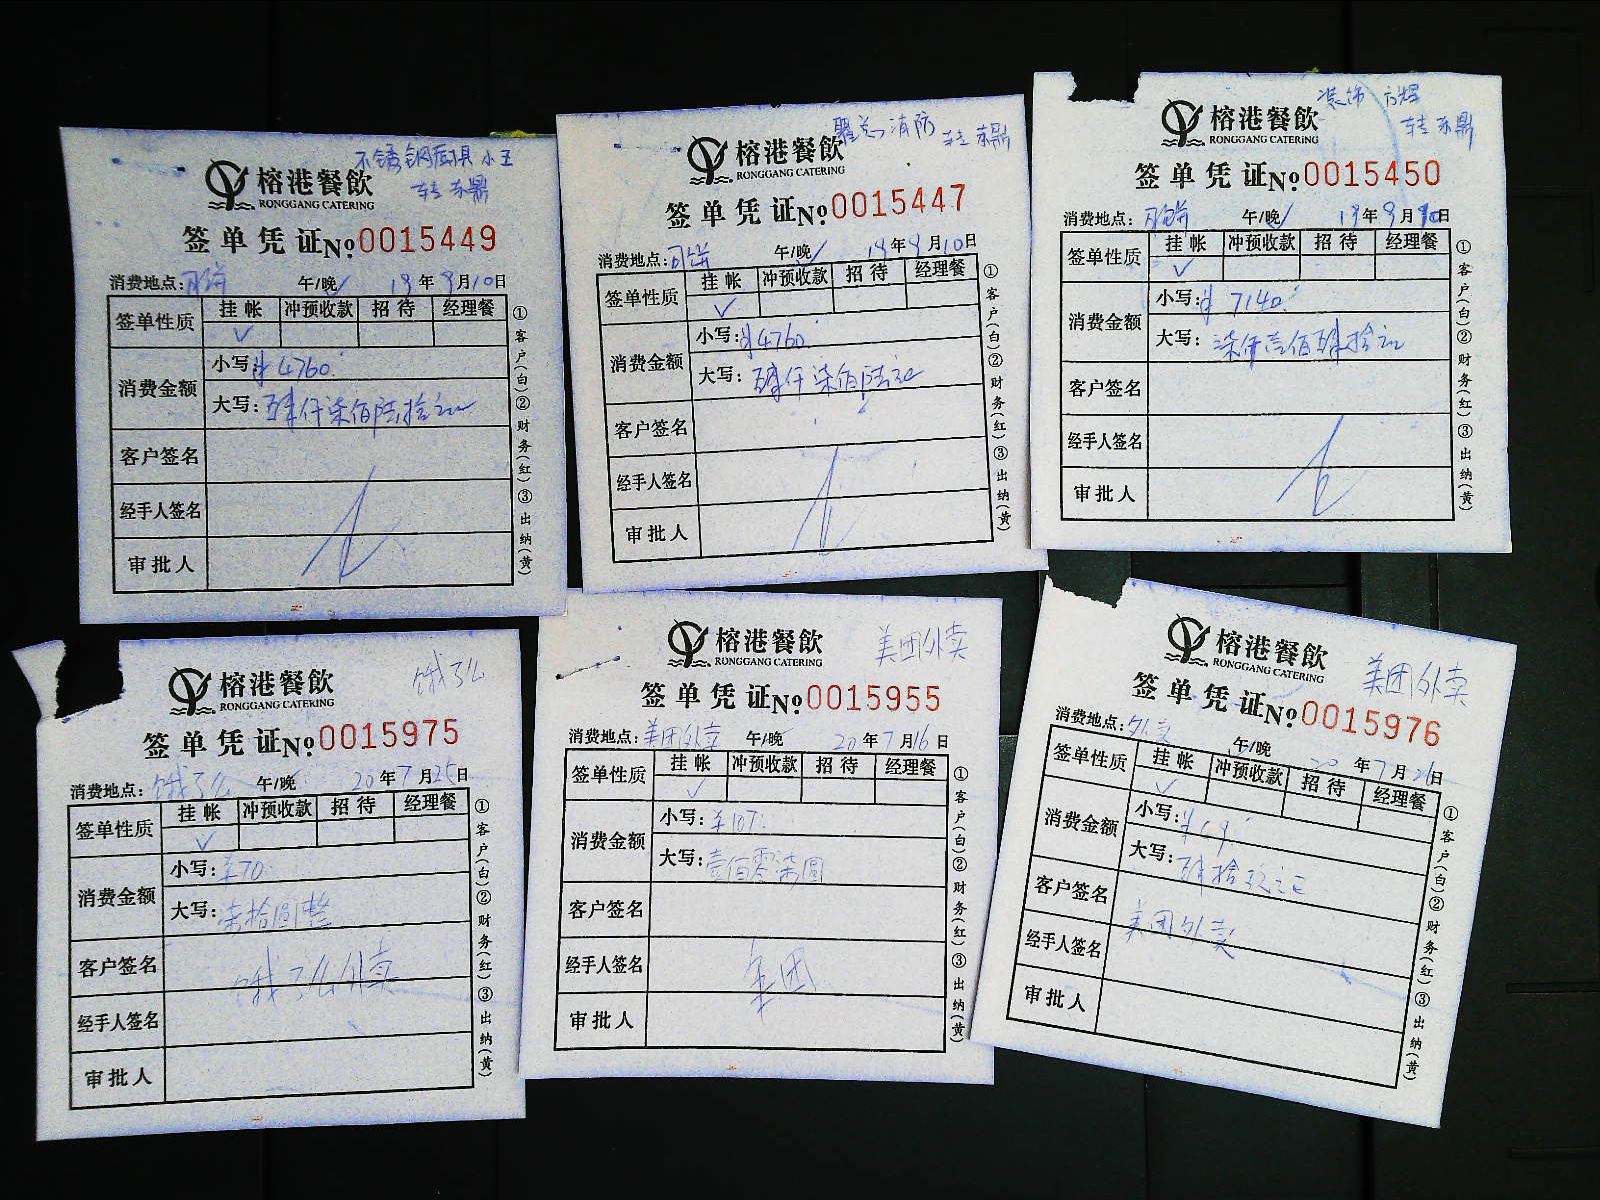 不锈钢厨具 小王
转 东鼎
榕港餐飲
RONGGANG CATERING
签单凭证 No 0015449
消费地点: 月饼 午/晚 19年9月10日
签单性质 挂帐 冲预收款 招待 经理餐
✓
消费金额 小写: ¥4760.
大写: 肆仟柒佰陆拾元
客户签名
经手人签名
审批人
①客户(白)②财务(红)③出纳(黄)
消防
转 东鼎
榕港餐飲
RONGGANG CATERING
签单凭证 No 0015447
消费地点: 月饼 午/晚 19年9月10日
签单性质 挂帐 冲预收款 招待 经理餐
✓
消费金额 小写: ¥4760.
大写: 肆仟柒佰陆元
客户签名
经手人签名
审批人
①客户(白)②财务(红)③出纳(黄)
装饰 方辉
转 东鼎
榕港餐飲
RONGGANG CATERING
签单凭证 No 0015450
消费地点: 月饼 午/晚 19年9月10日
签单性质 挂帐 冲预收款 招待 经理餐
✓
消费金额 小写: ¥7140.
大写: 柒仟壹佰肆拾元
客户签名
经手人签名
审批人
①客户(白)②财务(红)③出纳(黄)
饿了么
榕港餐飲
RONGGANG CATERING
签单凭证 No 0015975
消费地点: 饿了么 午/晚 20年7月25日
签单性质 挂帐 冲预收款 招待 经理餐
✓
消费金额 小写: ¥70.
大写: 柒拾圆整
客户签名 饿了么外卖
经手人签名
审批人
①客户(白)②财务(红)③出纳(黄)
美团外卖
榕港餐飲
RONGGANG CATERING
签单凭证 No 0015955
消费地点: 美团外卖 午/晚 20年7月16日
签单性质 挂帐 冲预收款 招待 经理餐
✓
消费金额 小写: ¥107.
大写: 壹佰零柒圆
客户签名
经手人签名 美团
审批人
①客户(白)②财务(红)③出纳(黄)
美团外卖
榕港餐飲
RONGGANG CATERING
签单凭证 No 0015976
消费地点: 外卖 午/晚 20年7月26日
签单性质 挂帐 冲预收款 招待 经理餐
✓
消费金额 小写:
大写: 肆拾玖元
客户签名 美团外卖
经手人签名
审批人
①客户(白)②财务(红)③出纳(黄)